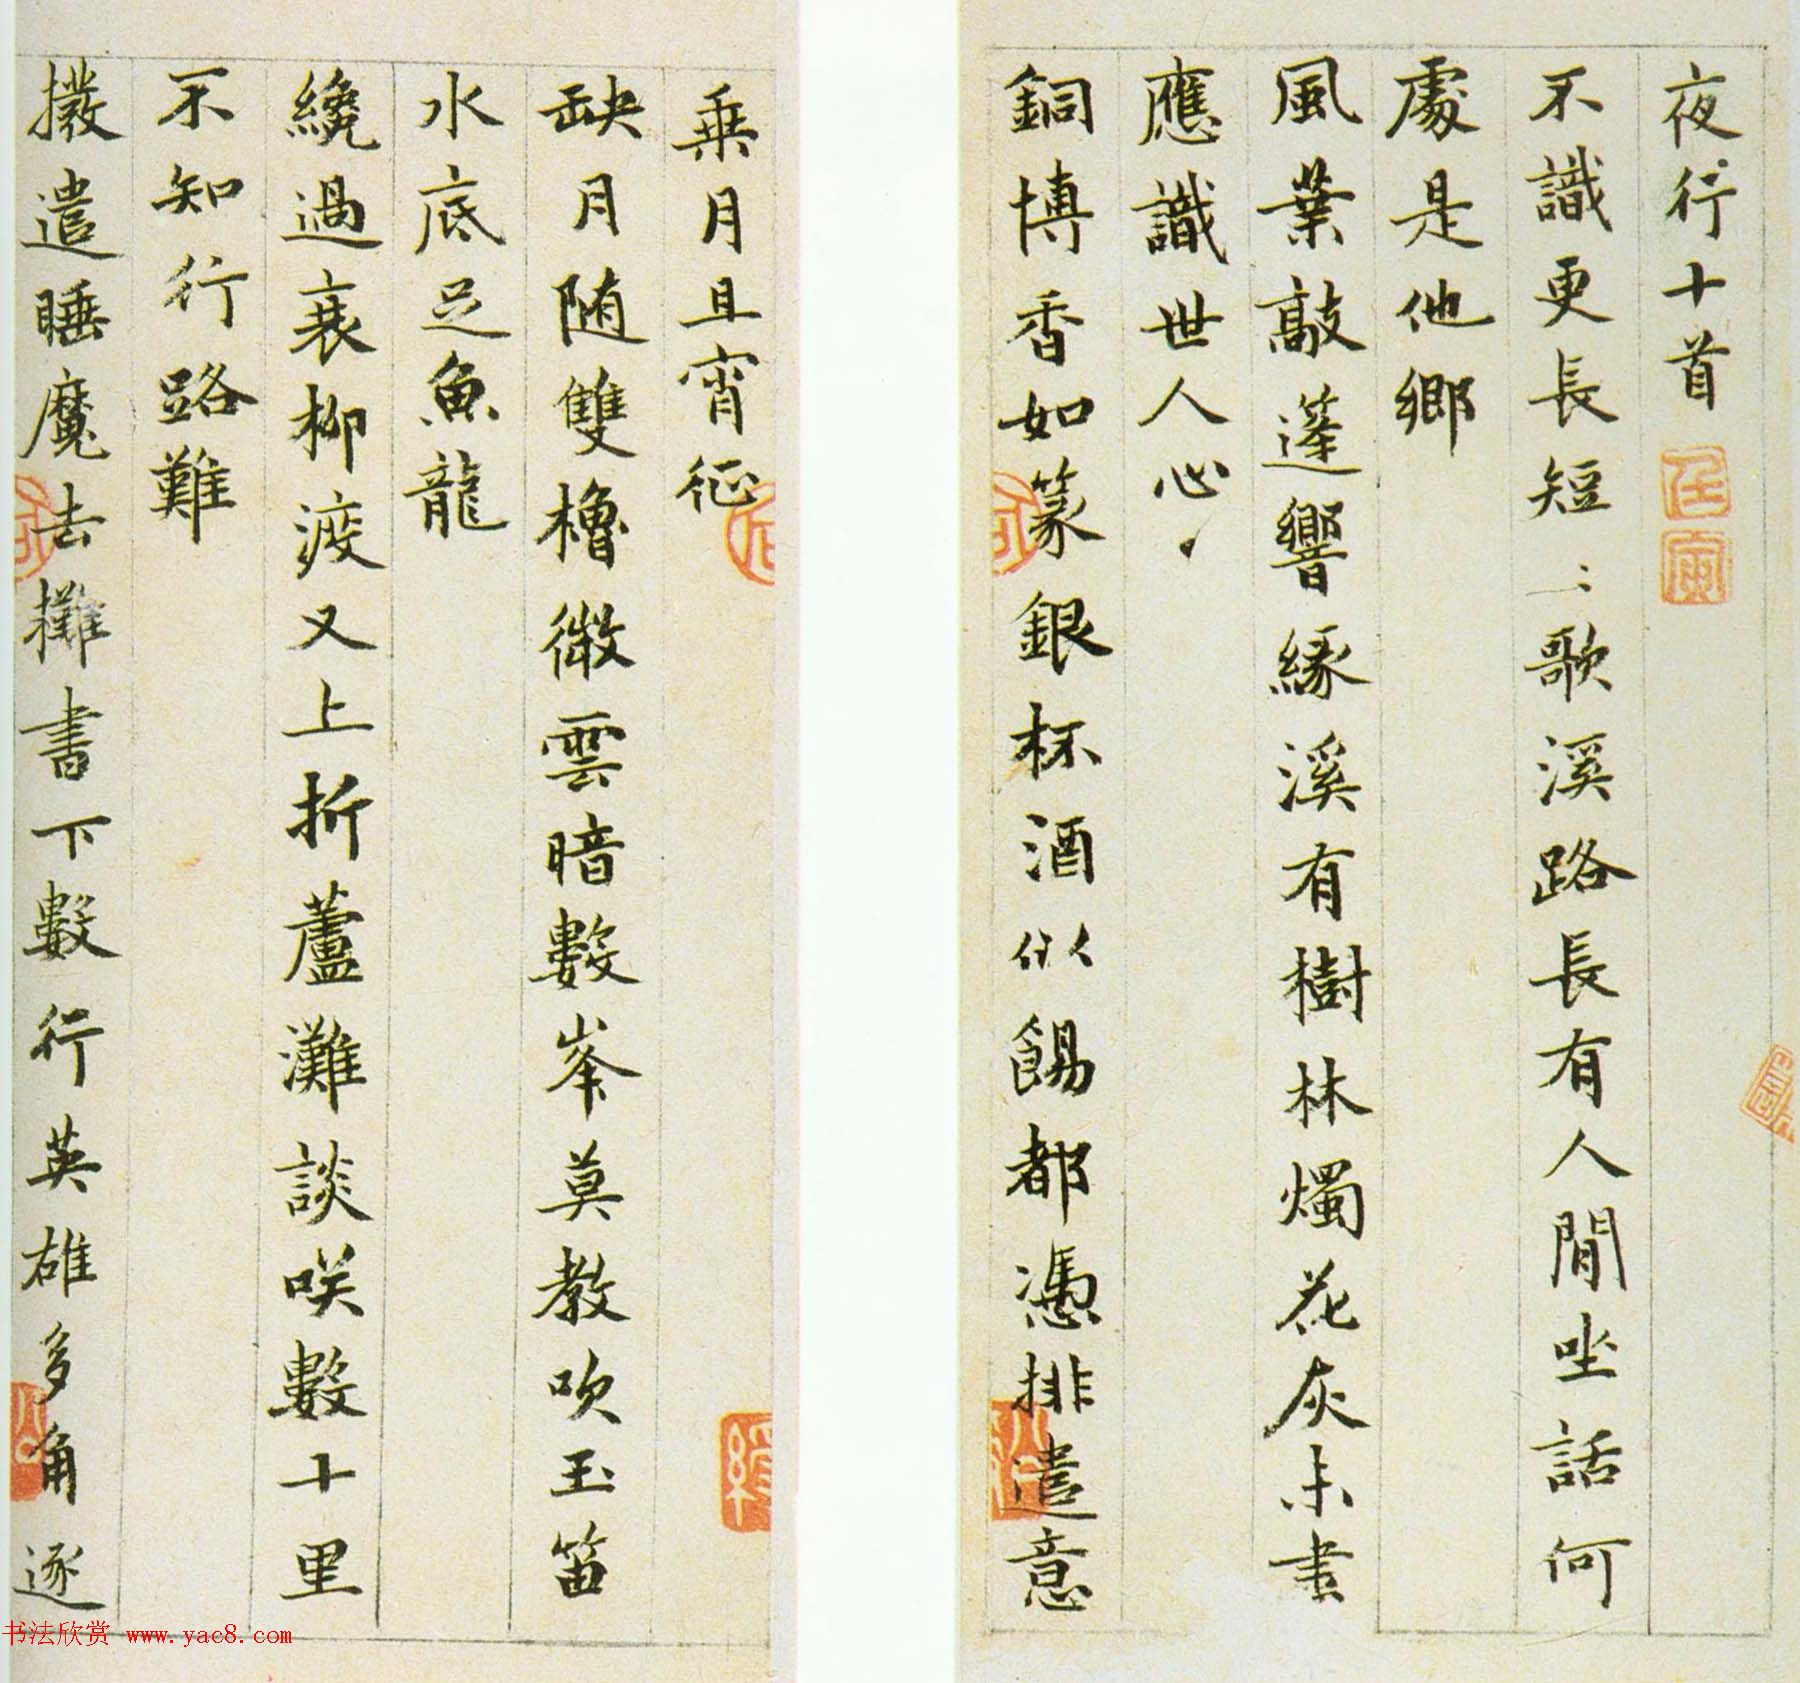 夜行十首
不識更長短二歌溪路長有人閒坐話何
處是他鄉
風葉敲蓬響緣溪有樹林燭花灰未盡
應識世人心
銅博香如篆銀杯酒似餳都憑排遣意
乘月且宵征
缺月随雙櫓微雲暗數峯莫教吹玉笛
水底足魚龍
纔過衰柳渡又上折蘆灘談咲數十里
不知行路難
撥遣睡魔去攤書下數行英雄多角逐
书法欣赏 www.yac8.com